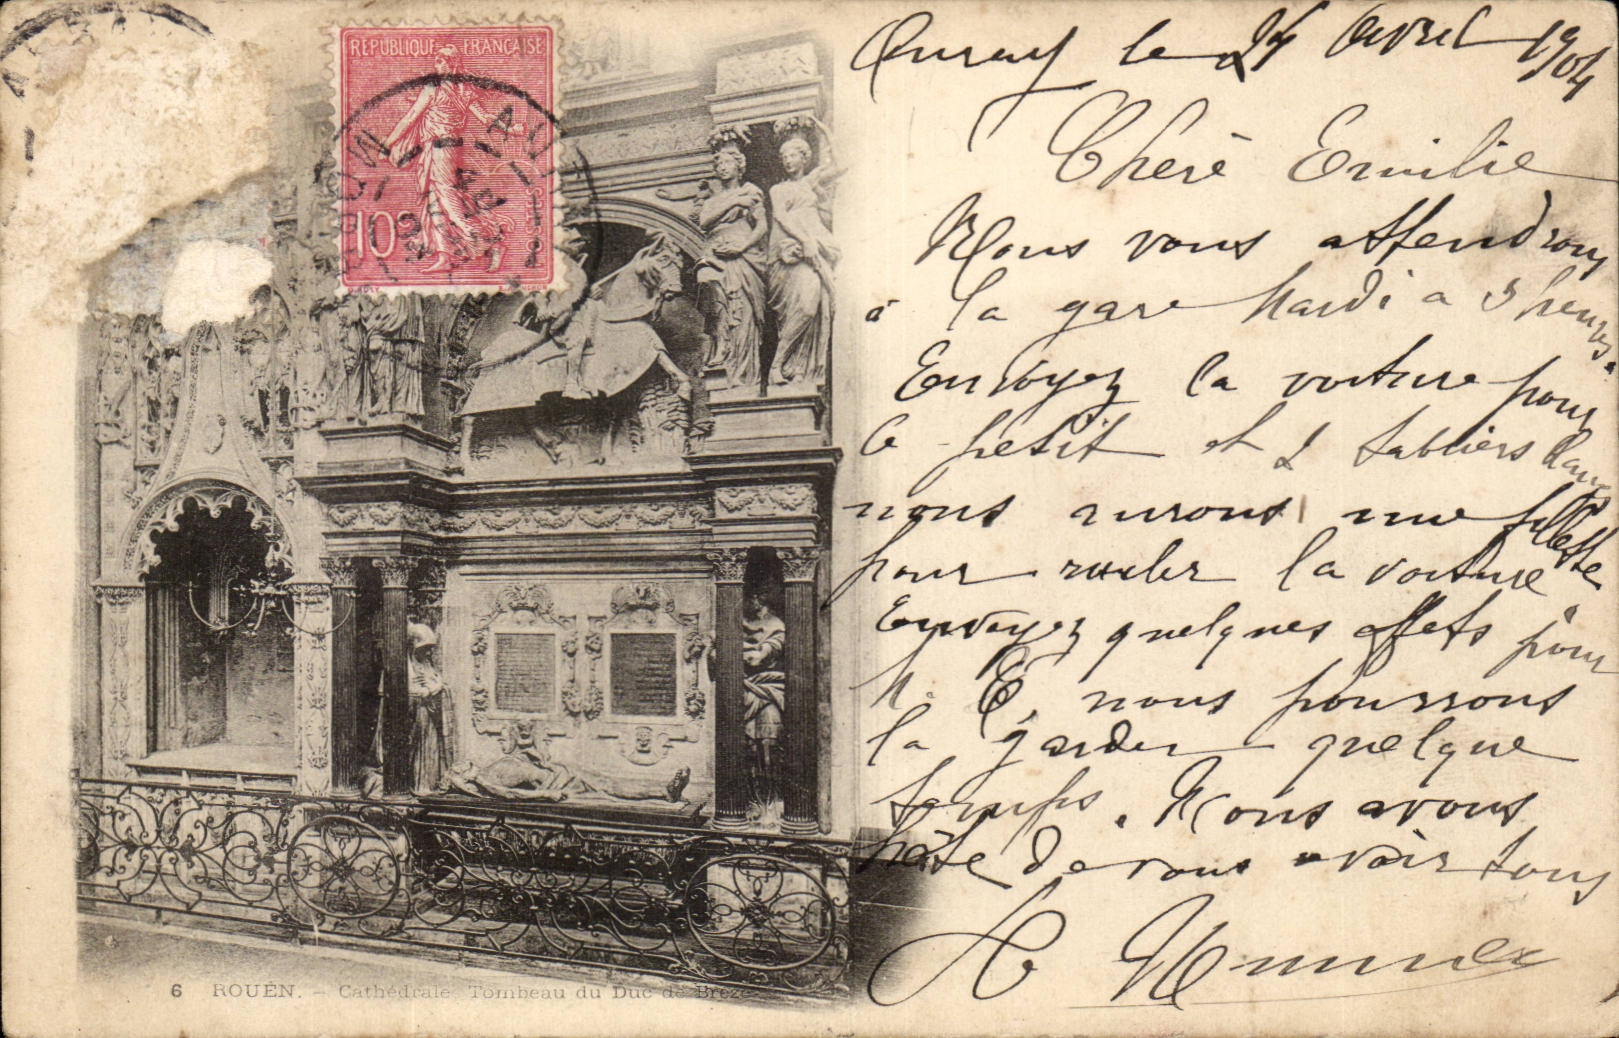 RÉPUBLIQUE FRANÇAISE
10c
POSTES
6 ROUEN. - Cathédrale Tombeau du Duc de Brezé
Auray le 24 Avril 1904
Cherè Emilie
Nous vous attendrons
à la gare Mardi a 3 heures.
Envoyez la voiture pour
le petit et 2 tabliers
nous aurons une fillette
pour rouler la voiture
Envoyez quelques effets pour
M. E, nous pourrons
la garder quelque
temps. Nous avons
hâte de vous avoir tous